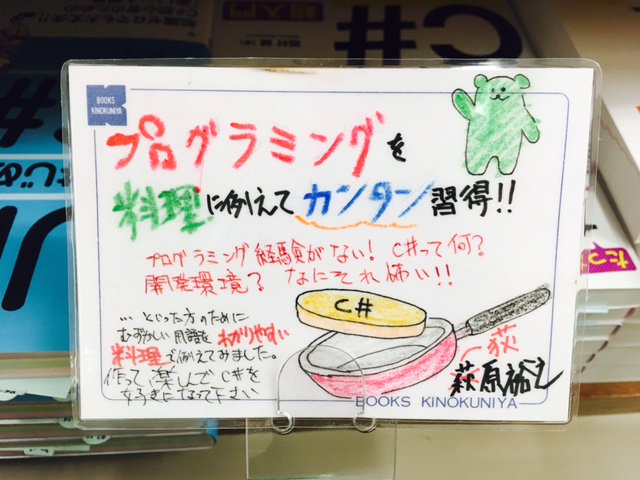 BOOKS
KINOKUNIYA
プログラミングを
料理に例えてカンタン習得!!
プログラミング経験がない! C#って何?
開発環境? なにそれ怖い!!
... といった方のために
むずかしい用語をわかりやすい
料理で例えてみました。
作って楽しんでC#を
好きになって下さい
C#
荻
萩原裕之
BOOKS KINOKUNIYA
C#
超入門